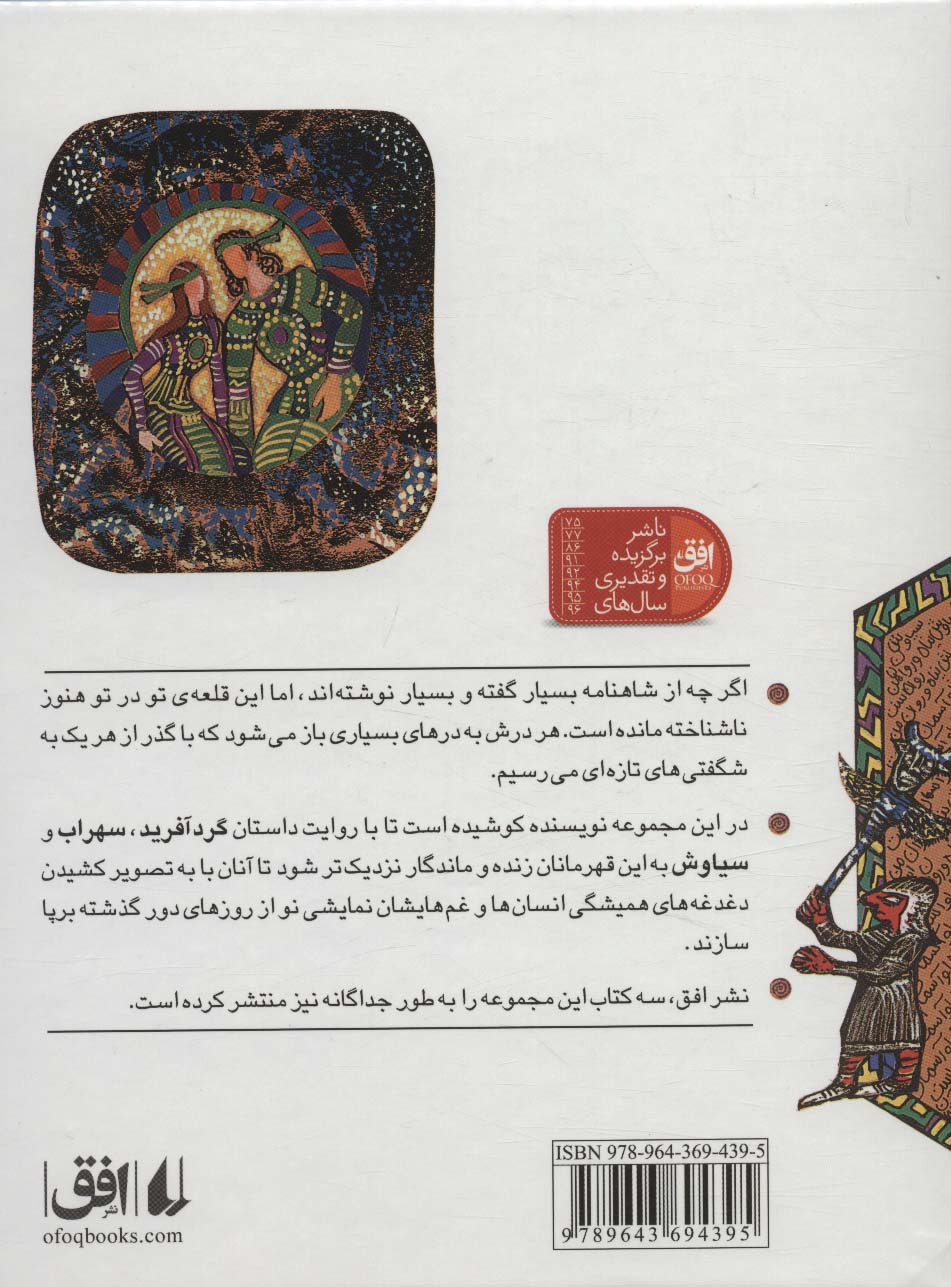 ناشر
برگزیده
و تقدیری
سال‌های
۷۵
۷۷
۸۶
۹۱
۹۲
۹۴
۹۵
۹۶
نشر افق
OFOQ
PUBLISHERS
اگر چه از شاهنامه بسیار گفته و بسیار نوشته‌اند، اما این قلعه‌ی تو در تو هنوز
ناشناخته مانده است. هر درش به درهای بسیاری باز می‌شود که با گذر از هر یک به
شگفتی‌های تازه‌ای می‌رسیم.
در این مجموعه نویسنده کوشیده است تا با روایت داستان گردآفرید، سهراب و
سیاوش به این قهرمانان زنده و ماندگار نزدیک‌تر شود تا آنان با به تصویر کشیدن
دغدغه‌های همیشگی انسان‌ها و غم‌هایشان نمایشی نو از روزهای دور گذشته برپا
سازند.
نشر افق، سه کتاب این مجموعه را به طور جداگانه نیز منتشر کرده است.
نشر افق
ofoqbooks.com
ISBN 978-964-369-439-5
9 789643 694395